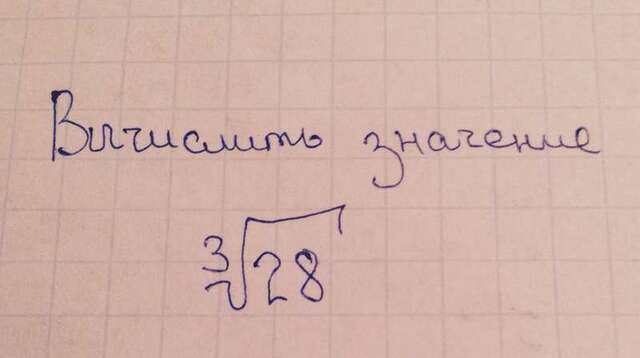 Вычислить значение
∛28